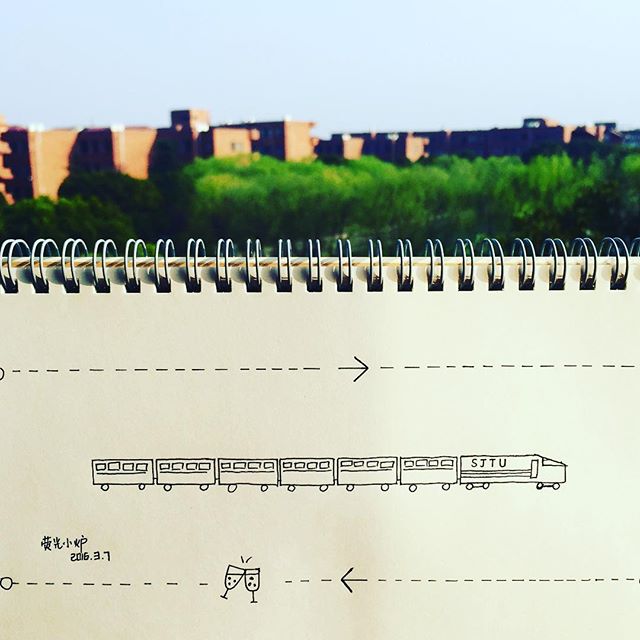 SJTU
荧光小炉
2016.3.7